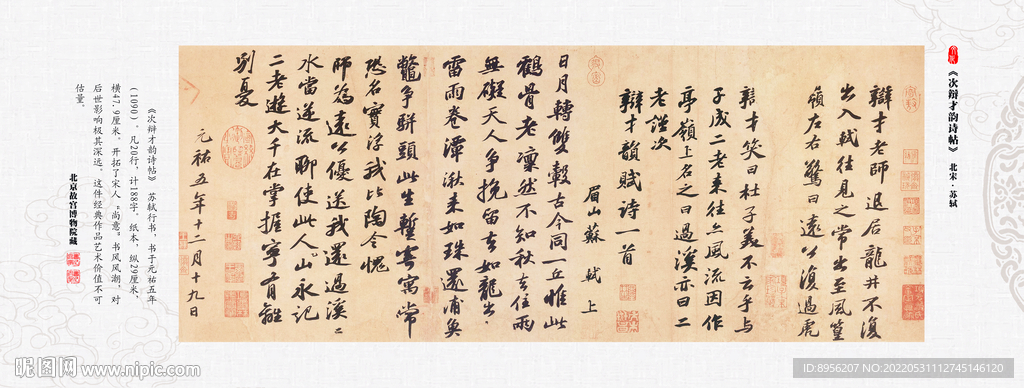 《次辩才韵诗帖》 北宋·苏轼
辩才老师退居龙井不复
出入轼往见之常出至风篁
岭左右惊曰远公复过虎
辩才笑曰杜子美不云乎与
子成二老来往亦风流因作
亭岭上名之曰过溪亦曰二
老谨次
辩才韵赋诗一首
眉山苏 轼 上
日月转双毂古今同一丘惟此
鹤骨老凛然不知秋去住两
无碍天人争挽留去如龙出
雷雨卷潭湫来如珠还浦鱼
鳖争骈头此生暂寄寓常
恐名实浮我比陶令愧
师为远公优送我还过溪溪
水当逆流聊使此人山永记
二老游大千在掌握宁有离
别忧
元祐五年十二月十九日
《次辩才韵诗帖》 苏轼行书，书于元祐五年
(1090)。凡20行，计188字。纸本，纵29厘米、
横47.9厘米。开拓了宋人“尚意”书风风潮，对
后世影响极其深远，这件经典作品艺术价值不可
估量。
北京故宫博物院藏
昵图网 www.nipic.com
ID:8956207 NO:20220531112745146120